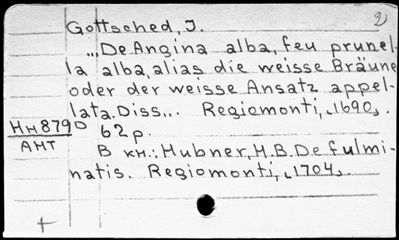 Gottsched, J. 2
„De Angina alba, feu prunel-
la alba, alias die weisse Bräune
oder der weisse Ansatz appel-
lata. Diss... Regiomonti, „1690„.
Нм 8790 62 p.
АНТ В кн.: Hubner, H.B. De fulmi-
natis. Regiomonti, „1704„.
+